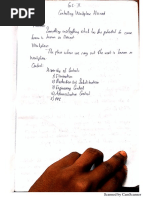 Controlling Workplace Hazard
Something
which has the potential to cause
harm is known as Hazard
Workplace:
The place where we carry out the work is known as
workplace.
Control:
Hierarchy of Control:
1) Elimination
2) Substitution
3) Engineering Control
4) Administrative Control
5) PPE
Scanned by CamScanner